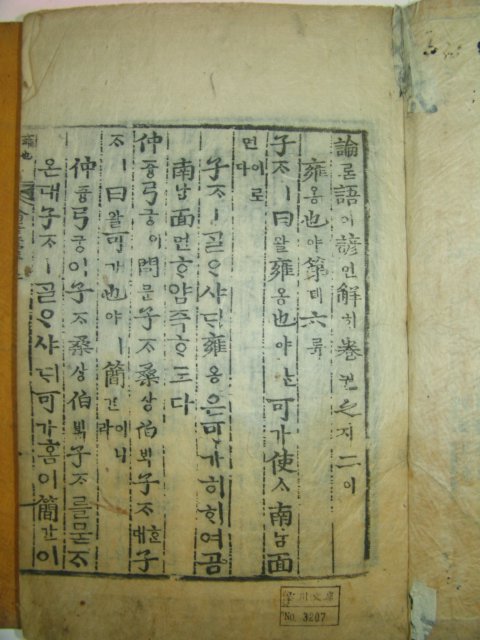 論론語어諺언解ᄒᆡ卷권之지二이
雍옹也야第뎨六륙
子ᄌᆞㅣ曰왈雍옹也야ᄂᆞᆫ可가使ᄉᆞ南남面
면이로다
子ᄌᆞㅣᄀᆞᆯᄋᆞ샤ᄃᆡ雍옹은可가히ᄒᆞ여곰
南남面면ᄒᆞ얌즉ᄒᆞ도다
仲듕弓궁이問문子ᄌᆞ桑상伯ᄇᆡᆨ子ᄌᆞᄒᆞᆫ대子
ᄌᆞㅣ曰왈可가也야ㅣ簡간이니라
仲듕弓궁이子ᄌᆞ桑상伯ᄇᆡᆨ子ᄌᆞᄅᆞᆯ묻ᄌᆞ
온대子ᄌᆞㅣᄀᆞᆯᄋᆞ샤ᄃᆡ可가홈이簡간이
雍也
川文庫
No. 3207